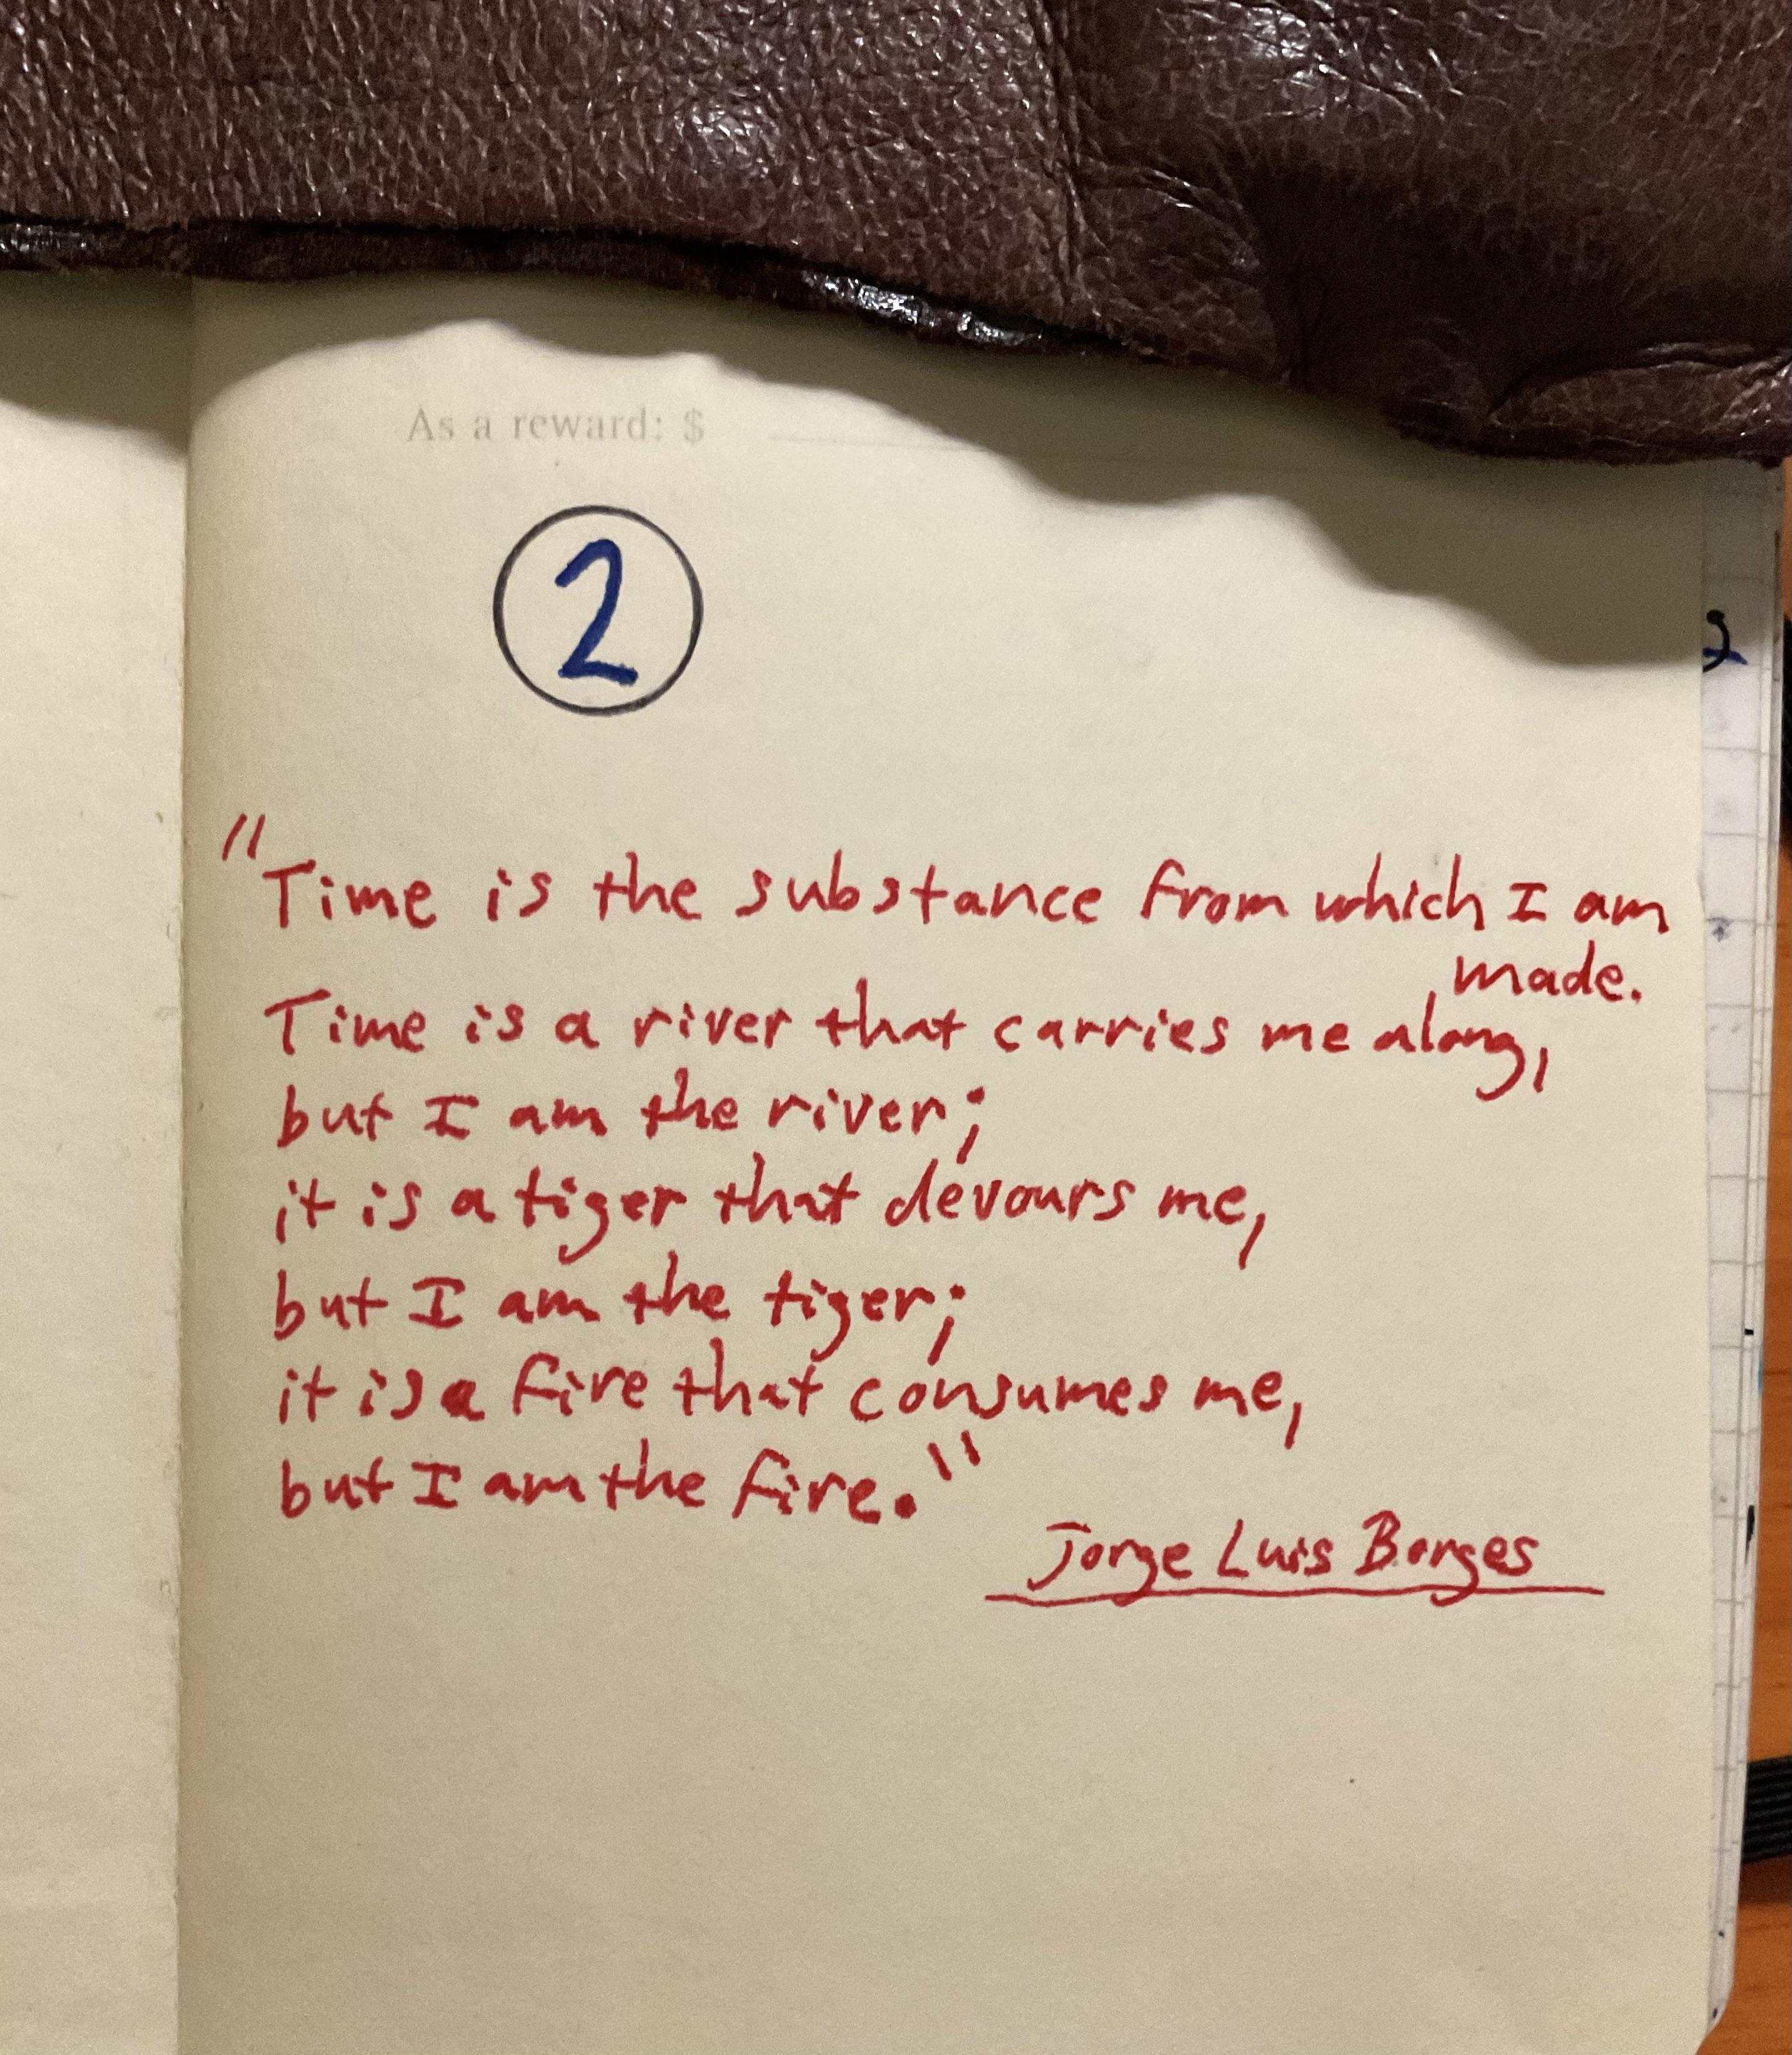 As a reward: $
2
"Time is the substance from which I am
made.
Time is a river that carries me along,
but I am the river;
it is a tiger that devours me,
but I am the tiger;
it is a fire that consumes me,
but I am the fire."
Jorge Luis Borges